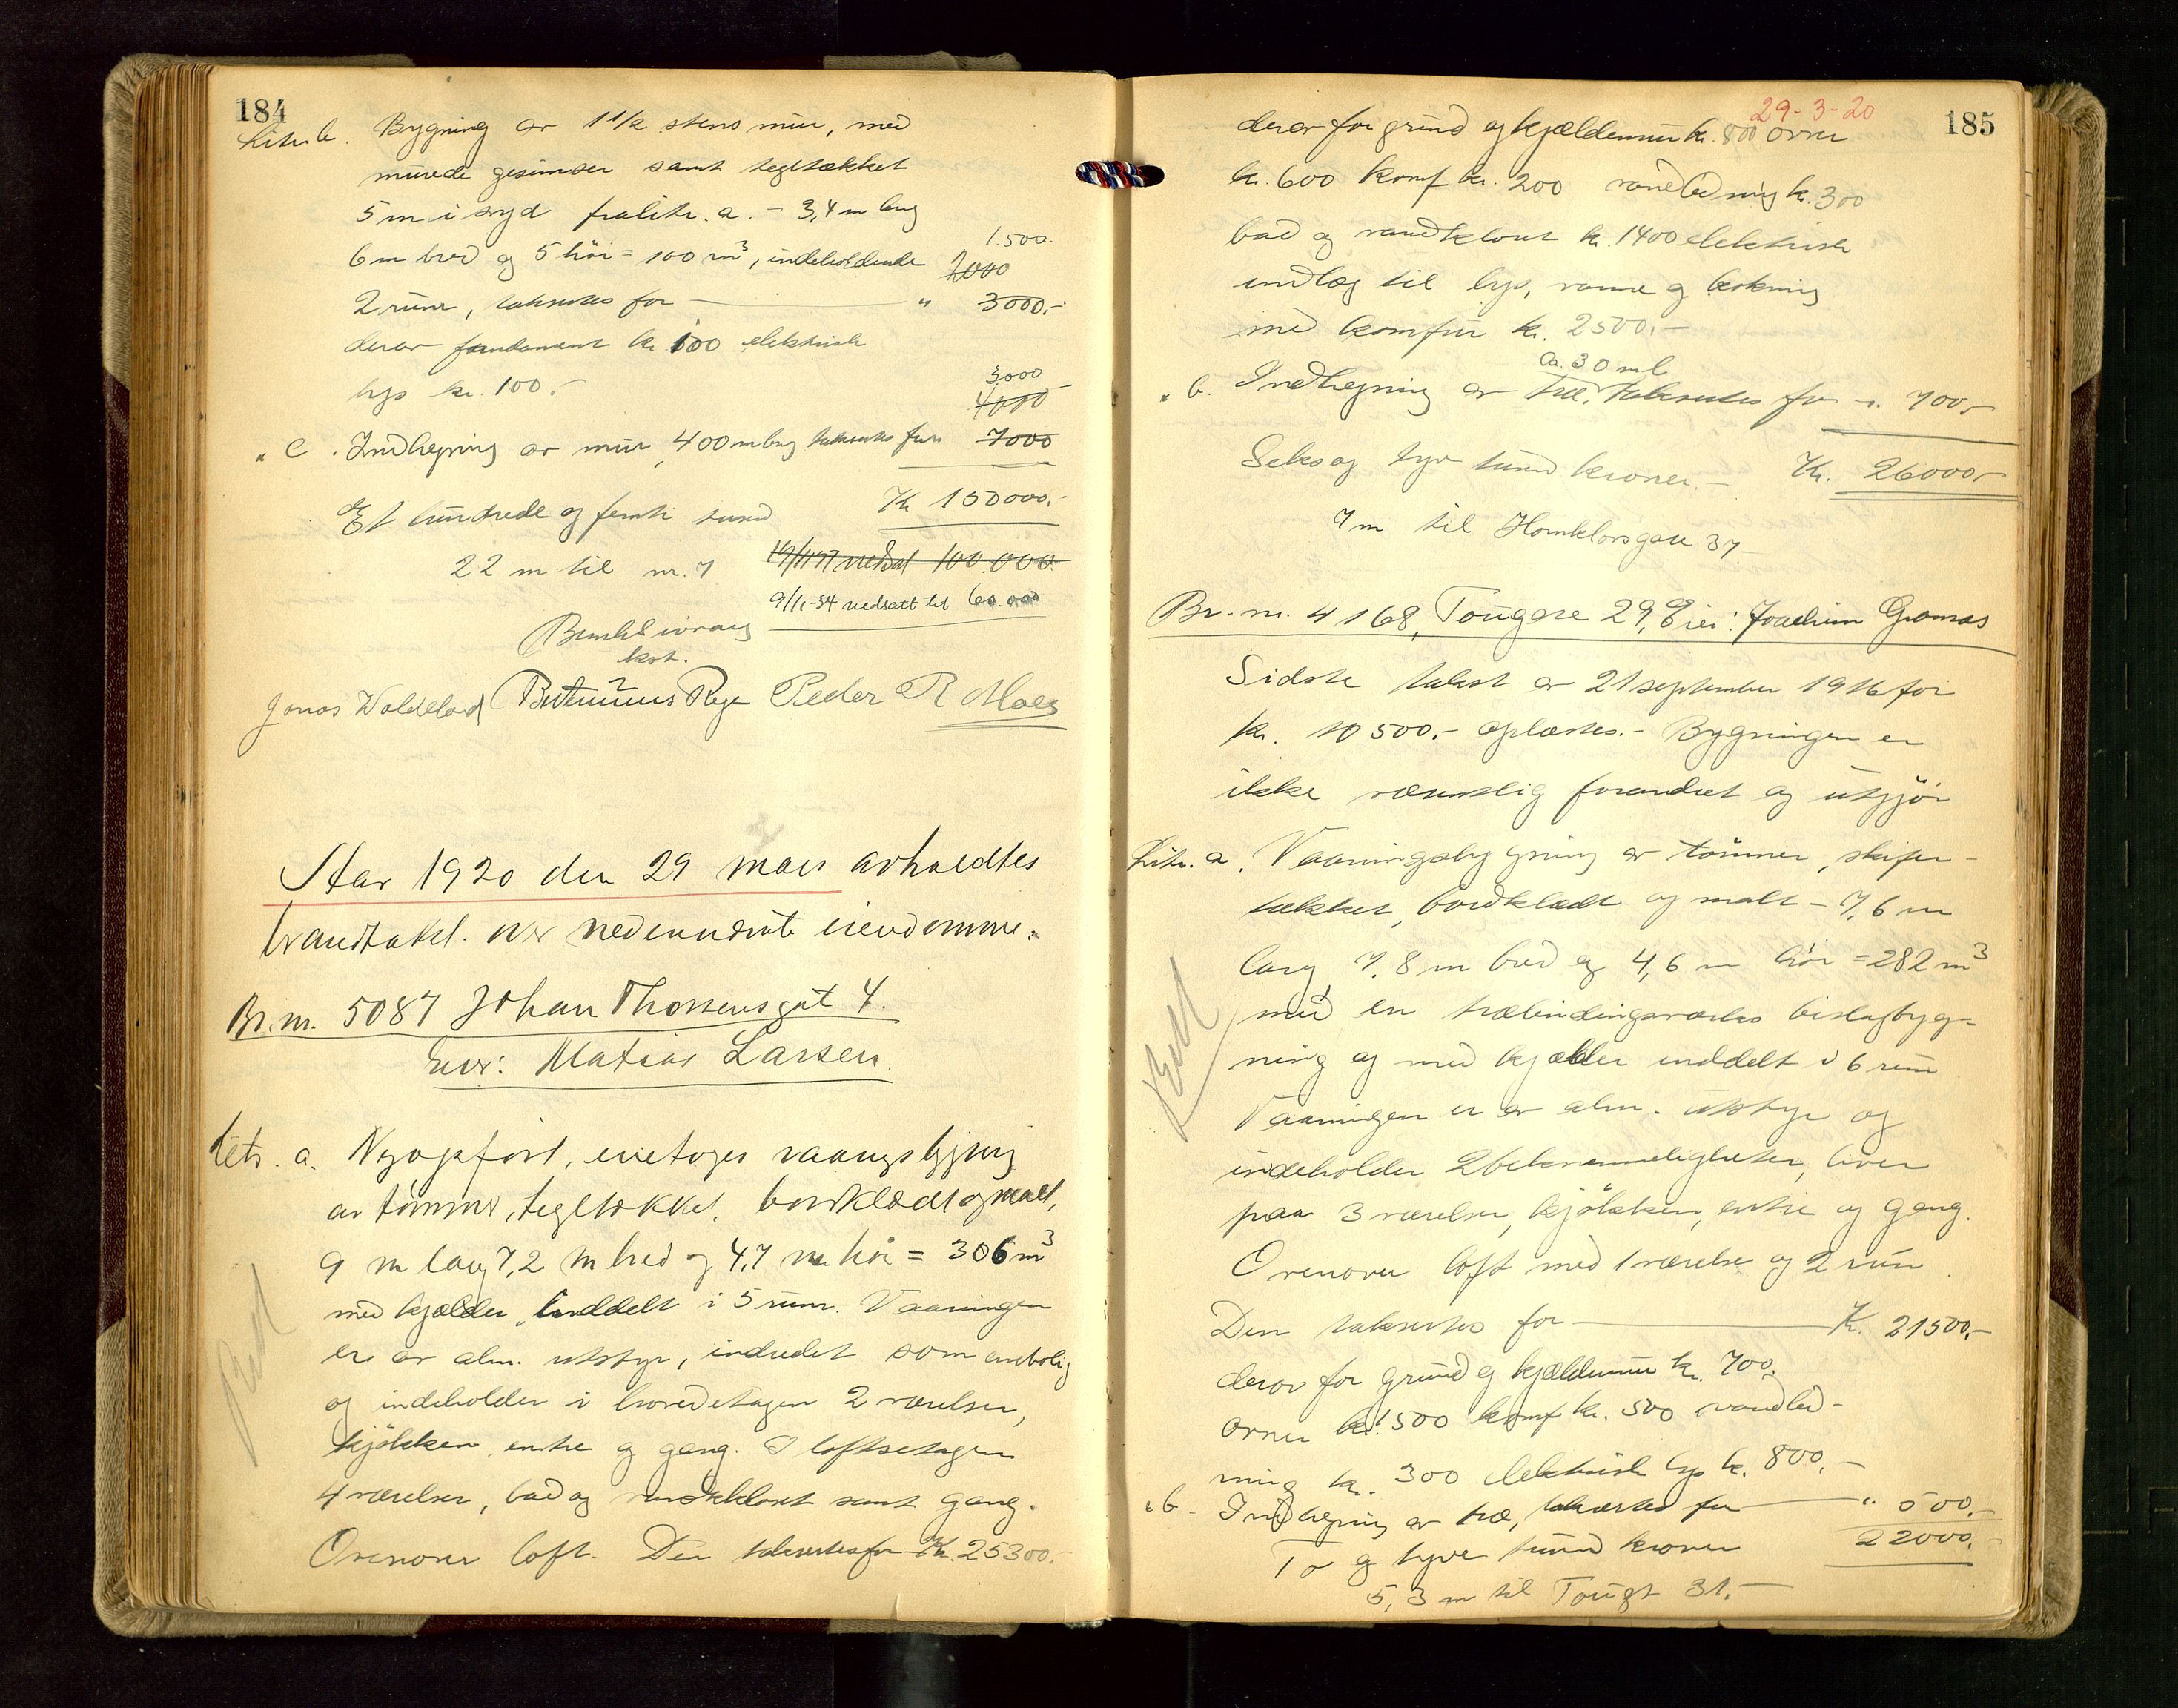 184
Litr. b. Bygning av 1 1/2 stens mur, med
murede gesimser samt tegltækket
5 m i syd fra litr. a. - 3,4 m lang
6 m bred og 5 høi = 100 m³, indeholdende 1.500. 2000
2 rum, taksertes for — " 3000.-
derav fundament kr. 100 elektrisk
lys kr. 100.-
3000
4000
" c. Indhegning av mur, 400 m lang taksertes for 7000
Et hundrede og femti tusind Kr 150000.-
22 m til nr. 7 nedsat 100.000.
9/11-34 nedsatt til 60.000
kst.
Jonas Waldeland Peder R Moen
Aar 1920 den 29 mars avholdtes
brandtakst. over nedennævnte eiendomme.
Br. nr. 5087 Johan Thorsensgat 4.
Eier: Matias Larsen.
Litr. a. Nyopført, enetages vaaningsbygning
av tømmer, tegltækket, bordklædt og malt,
9 m lang 7,2 m bred og 4,7 m høi = 306 m³
med kjælder, inddelt i 5 rum. Vaaningen
er av alm. utstyr, indredet som enebolig
og indeholder i hovedetagen 2 værelser,
kjøkken, entre og gang. I loftsetagen
4 værelser, bad og vandkloset samt gang.
Ovenover loft. Den taksertes for Kr. 25300.-
29-3-20
185
derav for grund og kjældermur kr. 800 ovner
kr. 600 komf kr. 200 vandledning kr. 300
bad og vandkloset kr. 1400 elektrisk
indlæg til lys, varme og kokning
med komfur kr. 2500.-
ca. 30 ml
" b. Indhegning av træ, taksertes for - ". 700,-
Seks og tyve tusind kroner.- Kr. 26000,-
7 m til Hornklovsgate 37
Br. nr. 4168, Tougate 29, Eier: Joachim Gramas
Sidste takst av 21 september 1916 for
kr. 10500.- oplæstes.- Bygningen er
ikke væsentlig forandret og utgjør
Litr. a. Vaaningsbygning av tømmer, skifer-
tækket, bordklædt og malt - 7,6 m
lang 7,8 m bred og 4,6 m høi = 282 m³
med en træbindingsverks bislagbyg-
ning og med kjælder inddelt i 6 rum
Vaaningen er av alm. utstyr og
indeholder 2 bekvemmeligheter, hver
paa 3 værelser, kjøkken, entre og gang.
Ovenover loft med 1 værelse og 2 rum.
Den taksertes for — K. 21500.-
derav for grund og kjældermur kr. 700.
ovner kr. 500 komf kr. 500 vandled-
ning kr. 300 elektrisk lys kr. 800.-
" b. Indhegning av træ, taksertes for — ". 500.-
To og tyve tusind kroner 22000.-
5,3 m til Tougt 31.-